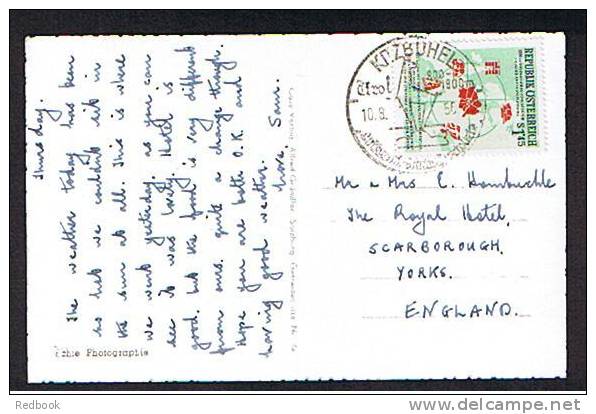 Thursday.
The weather today has been
so hot we couldn't sit in
the sun at all. This is where
we went yesterday. as you can
see it was lovely. Hotel is
good. but the food is very different
from ours. quite a change though.
Hope you are both O.K. and
having good weather.
love, Sam.
Echte Photographie
KITZBÜHEL
Tirol
800-
1800m
10.8.
REPUBLIK ÖSTERREICH
S 1.45
Mr & Mrs C. Hornbuckle
The Royal Hotel,
SCARBOROUGH,
YORKS.
ENGLAND.
Redbook
delcampe.net